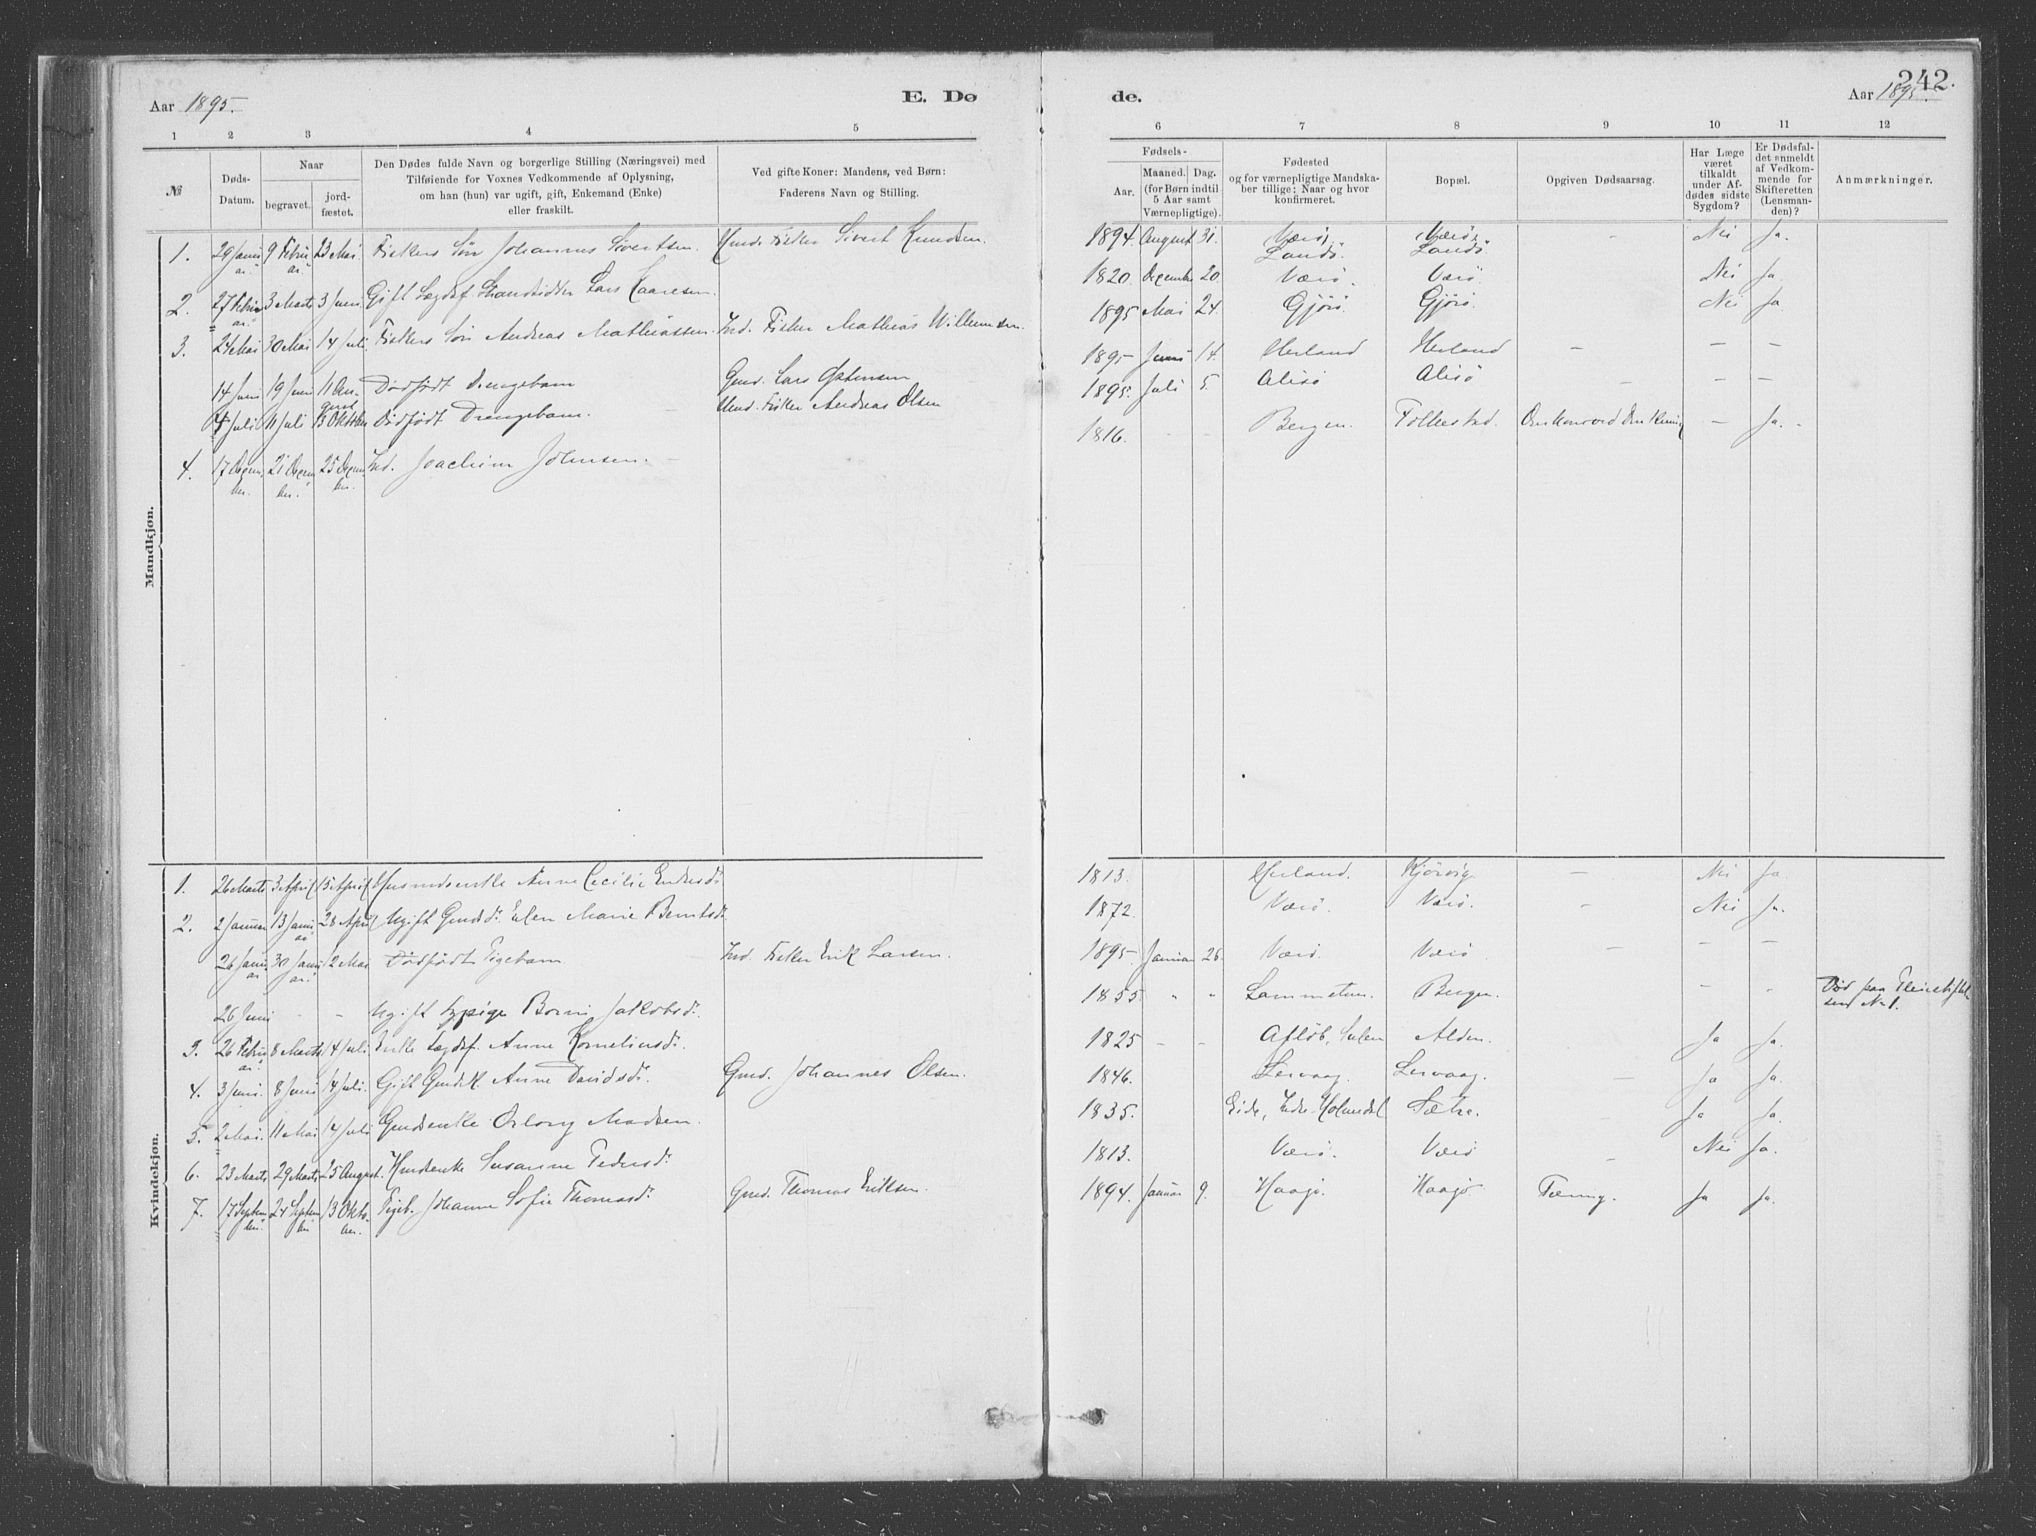 242.
Aar 1895.
E. Dø
de.
Aar 1895.
1 2 3 4 5 6 7 8 9 10 11 12
№
Døds-
Datum.
Naar
begravet.
jord-
fæstet.
Den Dødes fulde Navn og borgerlige Stilling (Næringsvei) med
Tilføiende for Voxnes Vedkommende af Oplysning,
om han (hun) var ugift, gift, Enkemand (Enke)
eller fraskilt.
Ved gifte Koner: Mandens, ved Børn:
Faderens Navn og Stilling.
Fødsels-
Aar.
Maaned. Dag.
(for Børn indtil
5 Aar samt
Værnepligtige).
Fødested
og for værnepligtige Mandska-
ber tillige: Naar og hvor
konfirmeret.
Bopæl.
Opgiven Dødsaarsag.
Har Læge
været
tilkaldt
under Af-
dødes sidste
Sygdom?
Er Dødsfal-
det anmeldt
af Vedkom-
mende for
Skifteretten
(Lensman-
den)?
Anmærkninger.
Mandkjøn.
1. 29 Janu ar. 9 Febru ar. 23 Mai. Fiskers Søn Johannes Sivertsen. Fisker Sivert Knudsen. 1894. August 31. Værø, Landø. Værø, Landø. – Nei Ja.
2. 27 Febru ar. 3 Marts 3 Juni. Gift Lægdsf. Strandsidder Lars Kaaresen. 1820. December 20. Værø. Værø Nei Ja.
3. 24 Mai 30 Mai 14 Juli. Fiskers Søn Andreas Mathiassen. Ind. Fisker Mathias Willumsen. 1895 Mai 24. Gjørø. Gjørø. Nei Ja
14 Juni 19 Juni 11 Au- gust Dødfødt Drengebarn Gmd. Lars 1895 Juni 14. Herland Herland – – –
5 Juli 11 Juli 13 Oktober Dødfødt Drengebarn. Fisker Andreas Olsen 1895. Juli 5. Alisø Alisø – – –
4. 17 Decem ber. 21 Decem ber. 25 Decem ber. Ind. Joachim Johnsen. – 1816. – – Bergen. Folkestad. – Ja. –
Kvindekjøn.
1. 26 Marts 3 April 15 April Husmdsenke Anne Cecilie Endresdr. 1813. Herland. Kjørvig – Nei Ja
2. 2 Januar 13 Janu ar 28 April Ugift Gmdsdr. Elen Marie Berntsdr. 1872. Værø. Værø. – Nei Ja.
26 Janu ar 30 Janu ar. 2 Mai Dødfødt Pigebarn Ind. Fisker Erik Larsen. 1895. Januar 26. Værø. Værø – – –
26 Juni – – Ugift Jakobsdr. 1855. " " Bergen. – – Død paa Pleiestiftel- sen No 1.
3. 26 Febru ar. 8 Marts 14 Juli. Enke Lægdsf. Anne Korneliusdr. 1825 – – Sulen Alden. Ja Ja.
4. 3 Juni. 8 Juni 14 Juli. Gift Gmdsk. Anne Davidsdr. Gmd. Johannes Olsen. 1846. Lervaag. Lervaag. – Ja Ja.
5. 2 Mai. 11 Mai 14 Juli Gmdsenke Oslong Madsen. 1835. Eide, Indre Holmedal Sætre. – Ja Ja.
6. 23 Marts 29 Marts 25 August. Susanne Pedersdr. 1813. Værø. Værø – Nei Ja.
7. 17 Septem ber. 24 Septem ber 13 Okto- ber. Pigeb. Johanne Sofie Thomasdr. Gmd. Thomas Eriksen. 1894. Januar 9. Haagø. Haagø Tæring. Ja Ja.